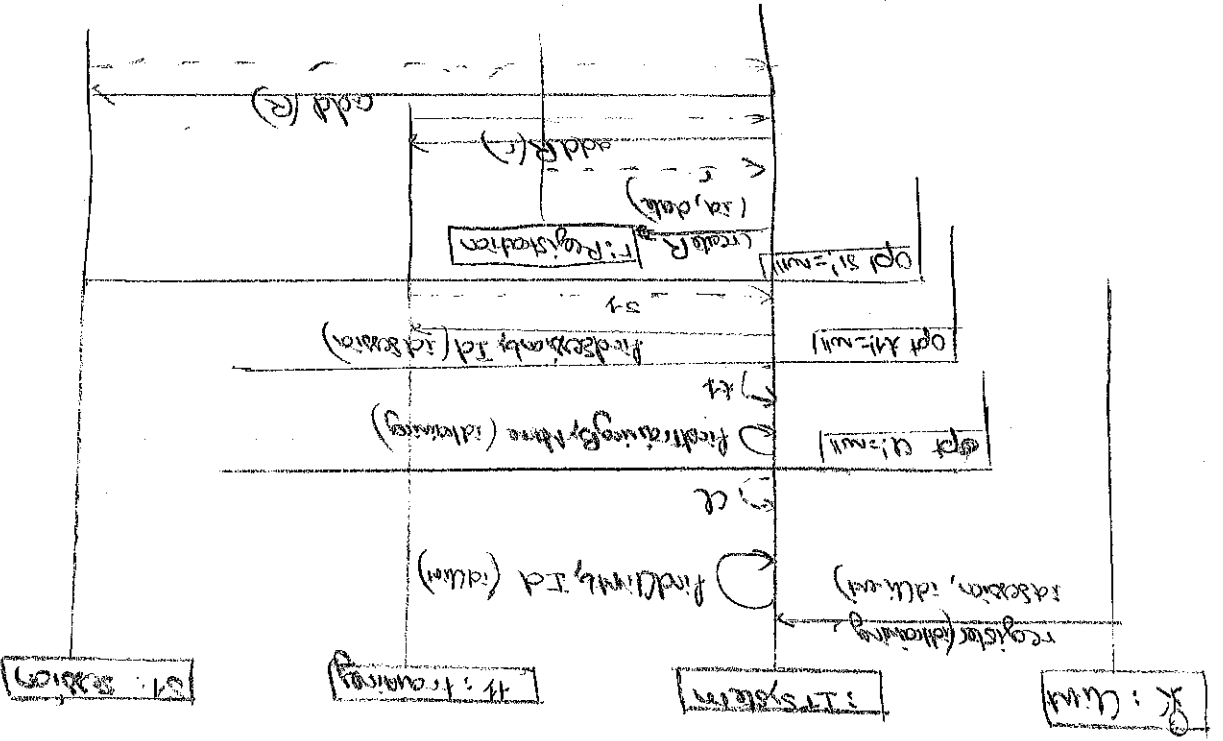 : Client
: ITSystem
t1 : training
s1 : session
register(idtraining,
idsession, idClient)
findClientby Id (idClient)
cl
opt cl != null
findtrainingBy Name (idtraining)
t1
opt t1 != null
findSessionby Id (idsession)
s1
opt s1 != null
createR
(id, date)
r : Registration
r
addR(r)
add(R)